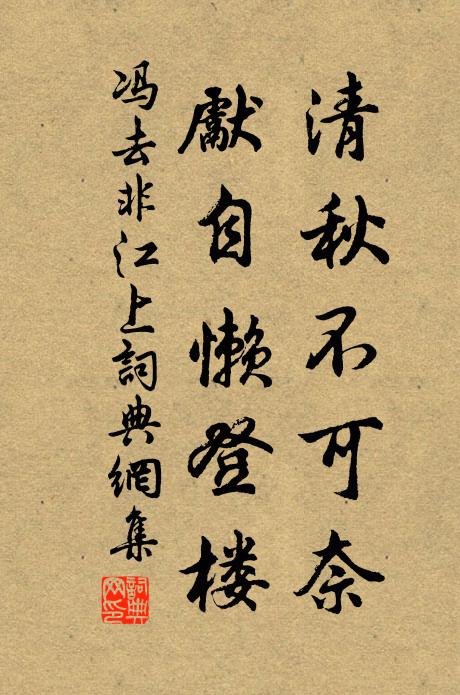 清秋不可奈
獻自懶登楼
冯去非江上詞典網集
詞典网印